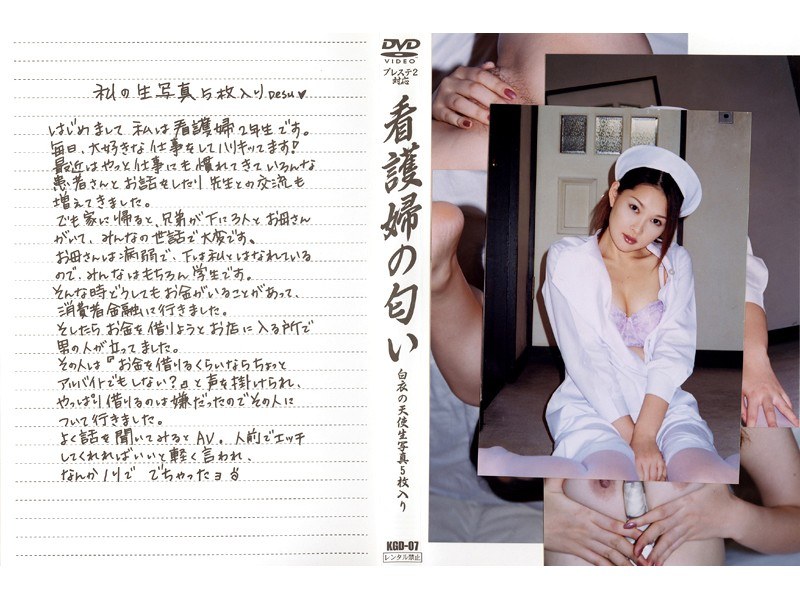 私の生写真5枚入りDESU♥
はじめまして 私は看護婦2年生です。
毎日、大好きな仕事をしてハリキッてます!
最近はやっと仕事にも慣れてきていろんな
患者さんとお話をしたり 先生との交流も
増えてきました。
でも家に帰ると、兄弟が下に3人とお母さん
がいて、みんなの世話で大変です。
お母さんは病弱で、下は私とはなれている
ので、みんなはもちろん学生です。
そんな時どうしてもお金がいることがあって、
消費者金融に行きました。
そしたらお金を借りようとお店に入る所で
男の人が立ってました。
その人は『お金を借りるくらいならちょっと
アルバイトでもしない?』と声を掛けられ、
やっぱり借りるのは嫌だったのでその人に
ついて行きました。
よく話を聞いてみるとAV。人前でエッチ
してくれればいいと軽く言われ、
なんかノリで でちゃったヨ
DVD
VIDEO
プレステ2
対応
看護婦の匂い
白衣の天使生写真5枚入り
KGD-07
レンタル禁止